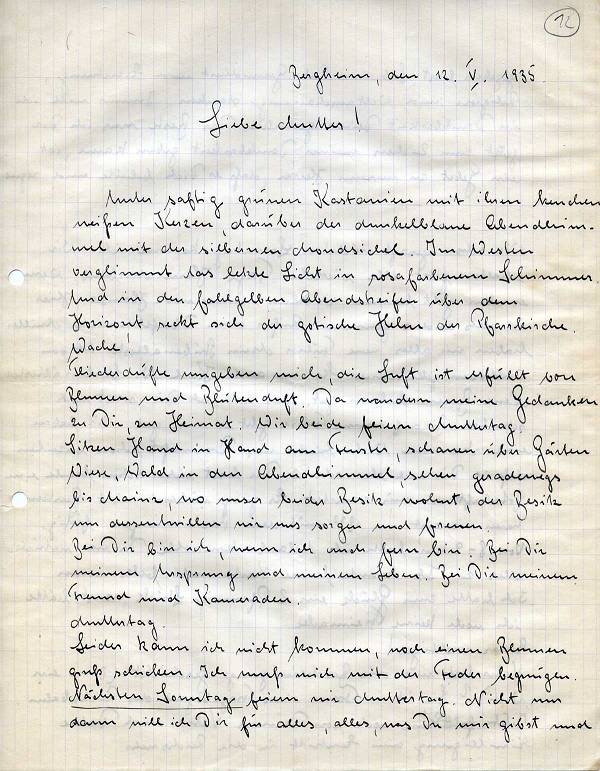 12
Bergheim, den 12. V. 1935
Liebe Mutter!
Unter saftig grünen Kastanien mit ihren
weißen Kerzen, darüber der dunkelblaue Abendhim-
mel mit der silbernen Mondsichel. Im Westen
verglimmt das letzte Licht in rosafarbenem Schimmer.
Und in den fahlgelben Abendstreifen über dem
Horizont reckt sich der gotische Helm der Pfarrkirche.
Wache!
Fliederdüfte umgeben mich, die Luft ist erfüllt von
Blumen und Blütenduft. Da wandern meine Gedanken
zu Dir, zur Heimat. Wir beide feiern Muttertag.
Sitzen Hand in Hand am Fenster, schauen über Gärten
Wiese, Wald in den Abendhimmel, sehen geradewegs
bis Mainz, wo unser beider Besitz wohnt, der Besitz
um dessentwillen wir uns sorgen und freuen.
Bei Dir bin ich, wenn ich auch fern bin. Bei Dir
meinem Ursprung und meinem Leben. Bei Dir meinem
Freund und Kameraden.
Muttertag.
Leider kann ich nicht kommen, noch einen Blumen
gruß schicken. Ich muß mich mit der Feder begnügen.
Nächsten Sonntag feiern wir Muttertag. Nicht nur
dann will ich Dir für alles, alles, was Du mir gibst und